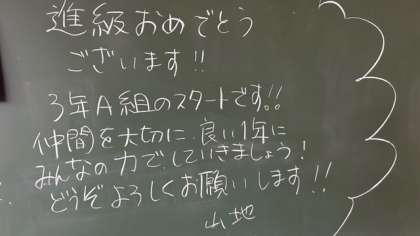 進級おめでとう
ございます!!
3年A組のスタートです!!
仲間を大切に、良い1年に
みんなの力で、していきましょう!
どうぞよろしくお願いします!!
山地